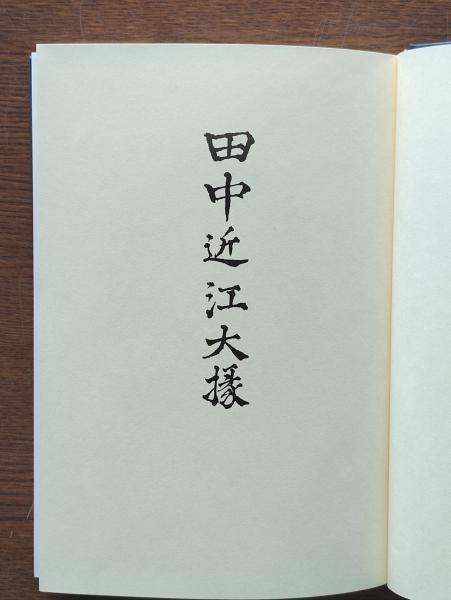 田中近江大掾